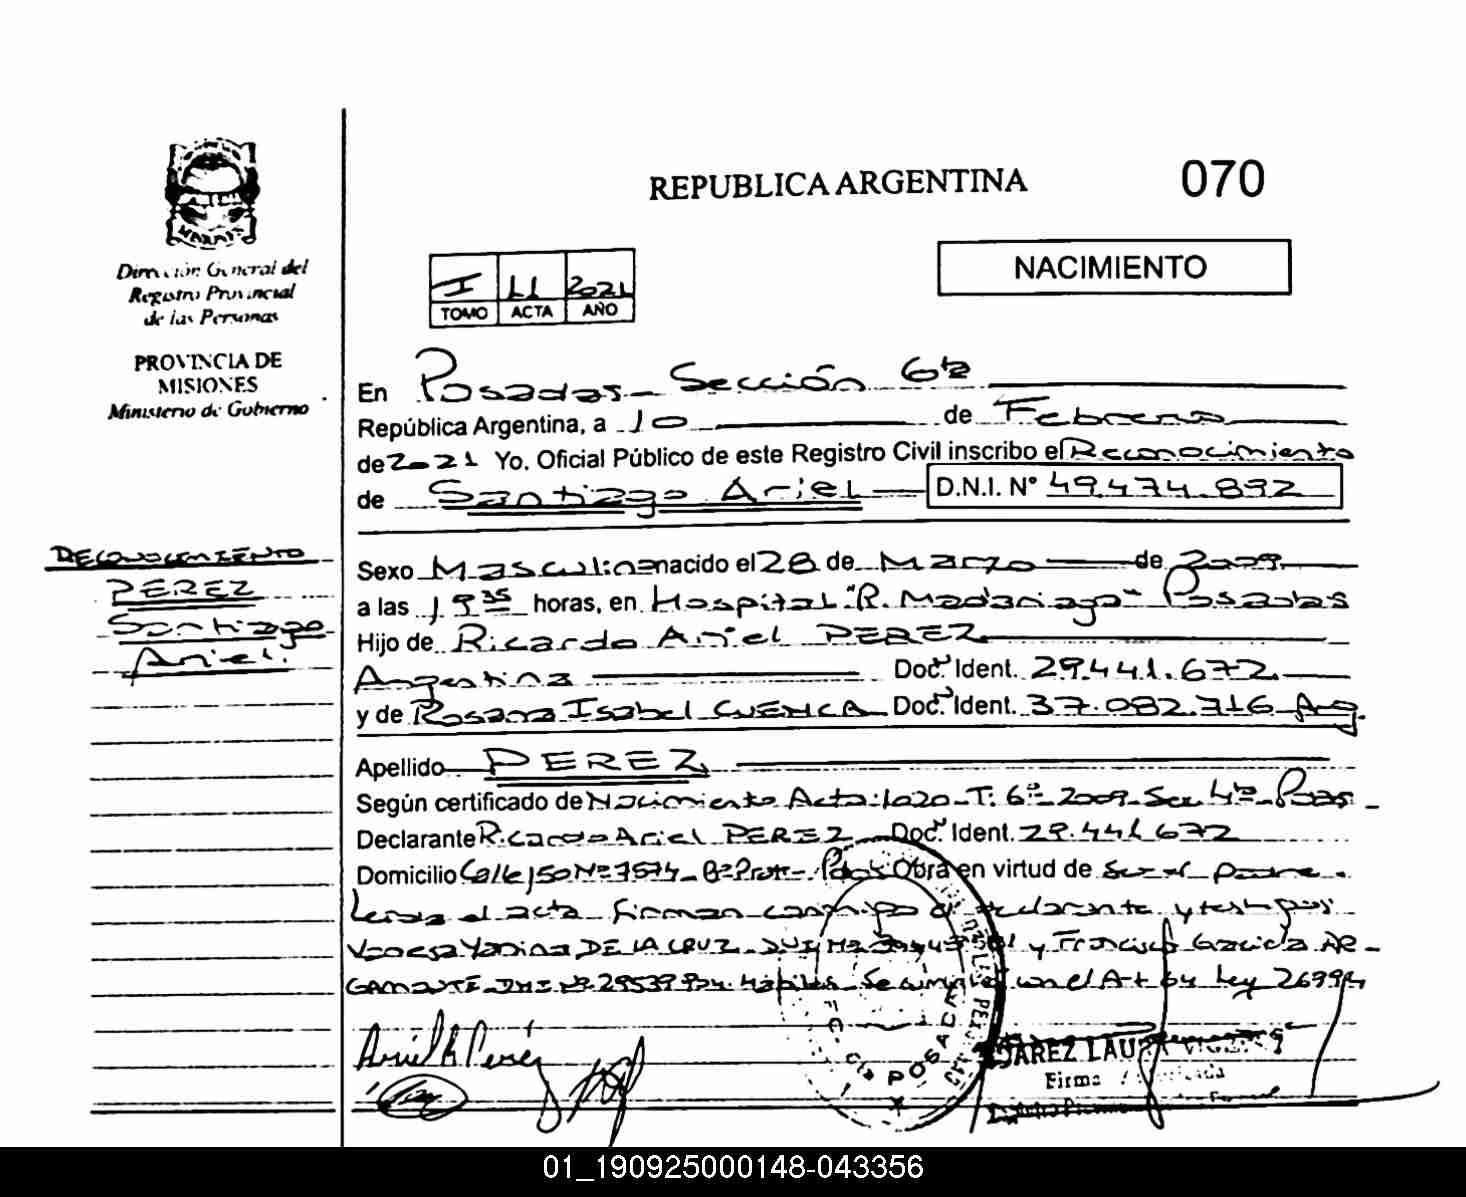 REPUBLICA ARGENTINA
070
NACIMIENTO
Dirección General del
Registro Provincial
de las Personas
PROVINCIA DE
MISIONES
Ministerio de Gobierno
I 11 2021
TOMO ACTA AÑO
En Posadas - Sección 6ta
República Argentina, a 10 de Febrero
de 2021 Yo, Oficial Público de este Registro Civil inscribo el Reconocimiento
de Santiago Ariel D.N.I. N° 49.474.892
RECONOCIMIENTO
PEREZ
Santiago
Ariel.
Sexo Masculino nacido el 28 de Marzo de 2009
a las 19 35 horas, en Hospital "R. Madariaga" Posadas
Hijo de Ricardo Ariel PEREZ
Argentina Doc. Ident. 29.441.672
y de Rosana Isabel CUENCA Doc. Ident. 37.082.716 Arg.
Apellido PEREZ
Según certificado de Nacimiento Acta: 1020 - T. 6º - 2009 - Sec 4ta - Posadas -
Declarante Ricardo Ariel PEREZ Doc. Ident. 29.441.672
Domicilio Calle 150 Nº 7574 - Bº Obra en virtud de ser el padre.
Leida el acta firman conmigo el declarante y testigos
Vanesa Yanina DE LA CRUZ DNI Nº y Francisco AR-
GAMONTE DNI Nº Hábiles. Se cumple con el Art 64 Ley 26994
Ariel R Perez
POSADAS
SUAREZ LAURA
Firma Autorizada
01_190925000148-043356